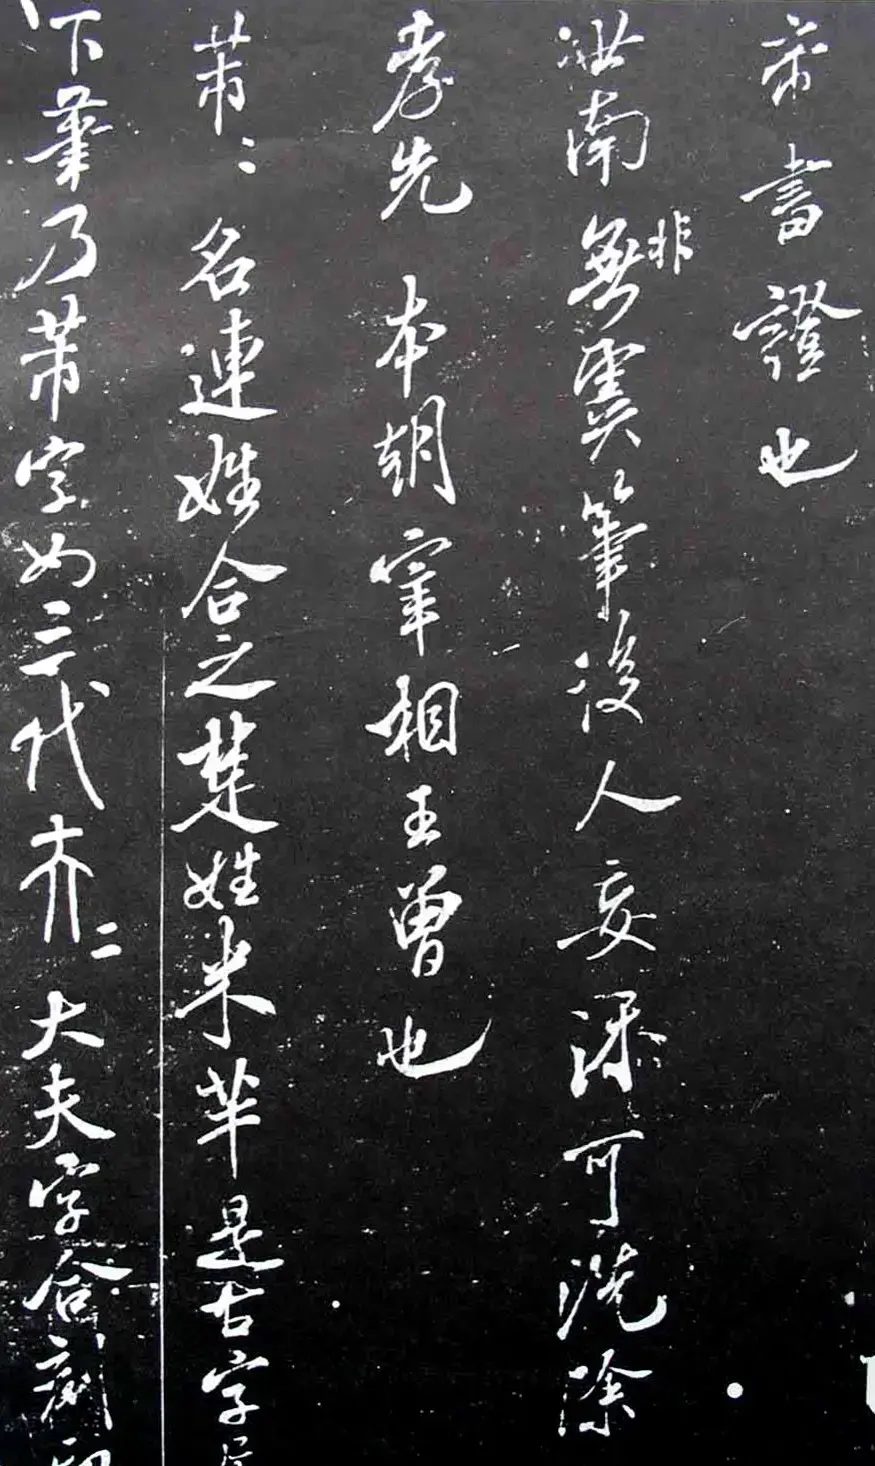 芾書證也
泄南無非霙筆後人妄添可洗除
孝先 本朝宰相王曾也
芾芾名連姓合之楚姓米芉是古字屈
下筆乃芾字如三代亣二大夫字合刻印